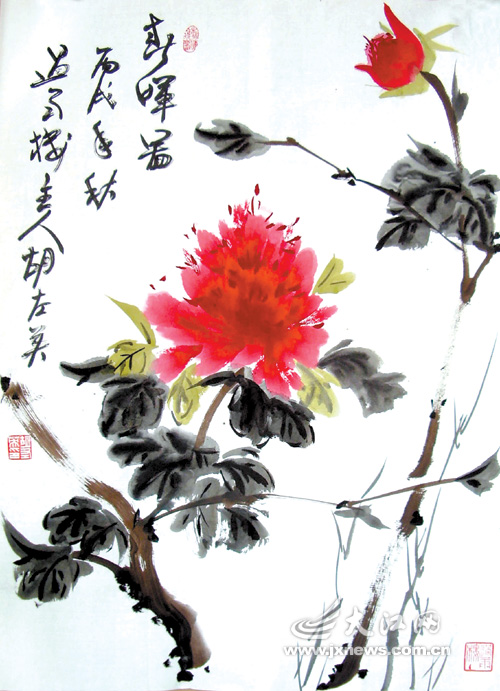 春暉图
丙戌年秋
主人胡左英
大江网
www.jxnews.com.cn